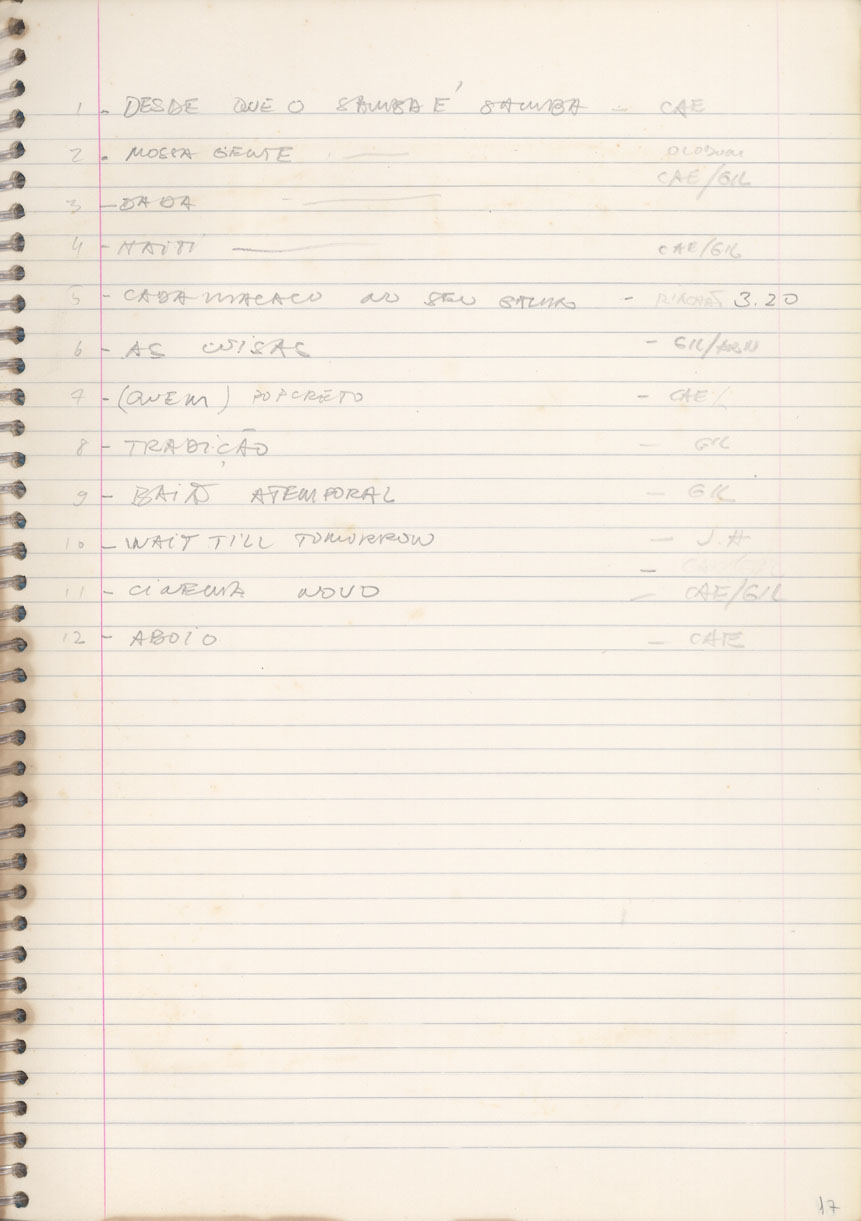 1 - DESDE QUE O SAMBA É SAMBA - CAE
2 - NOSSA GENTE - OLODUM
CAE/GIL
3 - DADA
4 - HAITI - CAE/GIL
5 - CADA MACACO NO SEU GALHO - RIACHÃO 3.20
6 - AS COISAS - GIL/ARN
7 - (QUEM) POPCRETO - CAE/
8 - TRADIÇÃO - GIL
9 - BAIÃO ATEMPORAL - GIL
10 - WAIT TILL TOMORROW - J.H
11 - CINEMA NOVO - CAE/GIL
12 - ABOIO - CAE
17